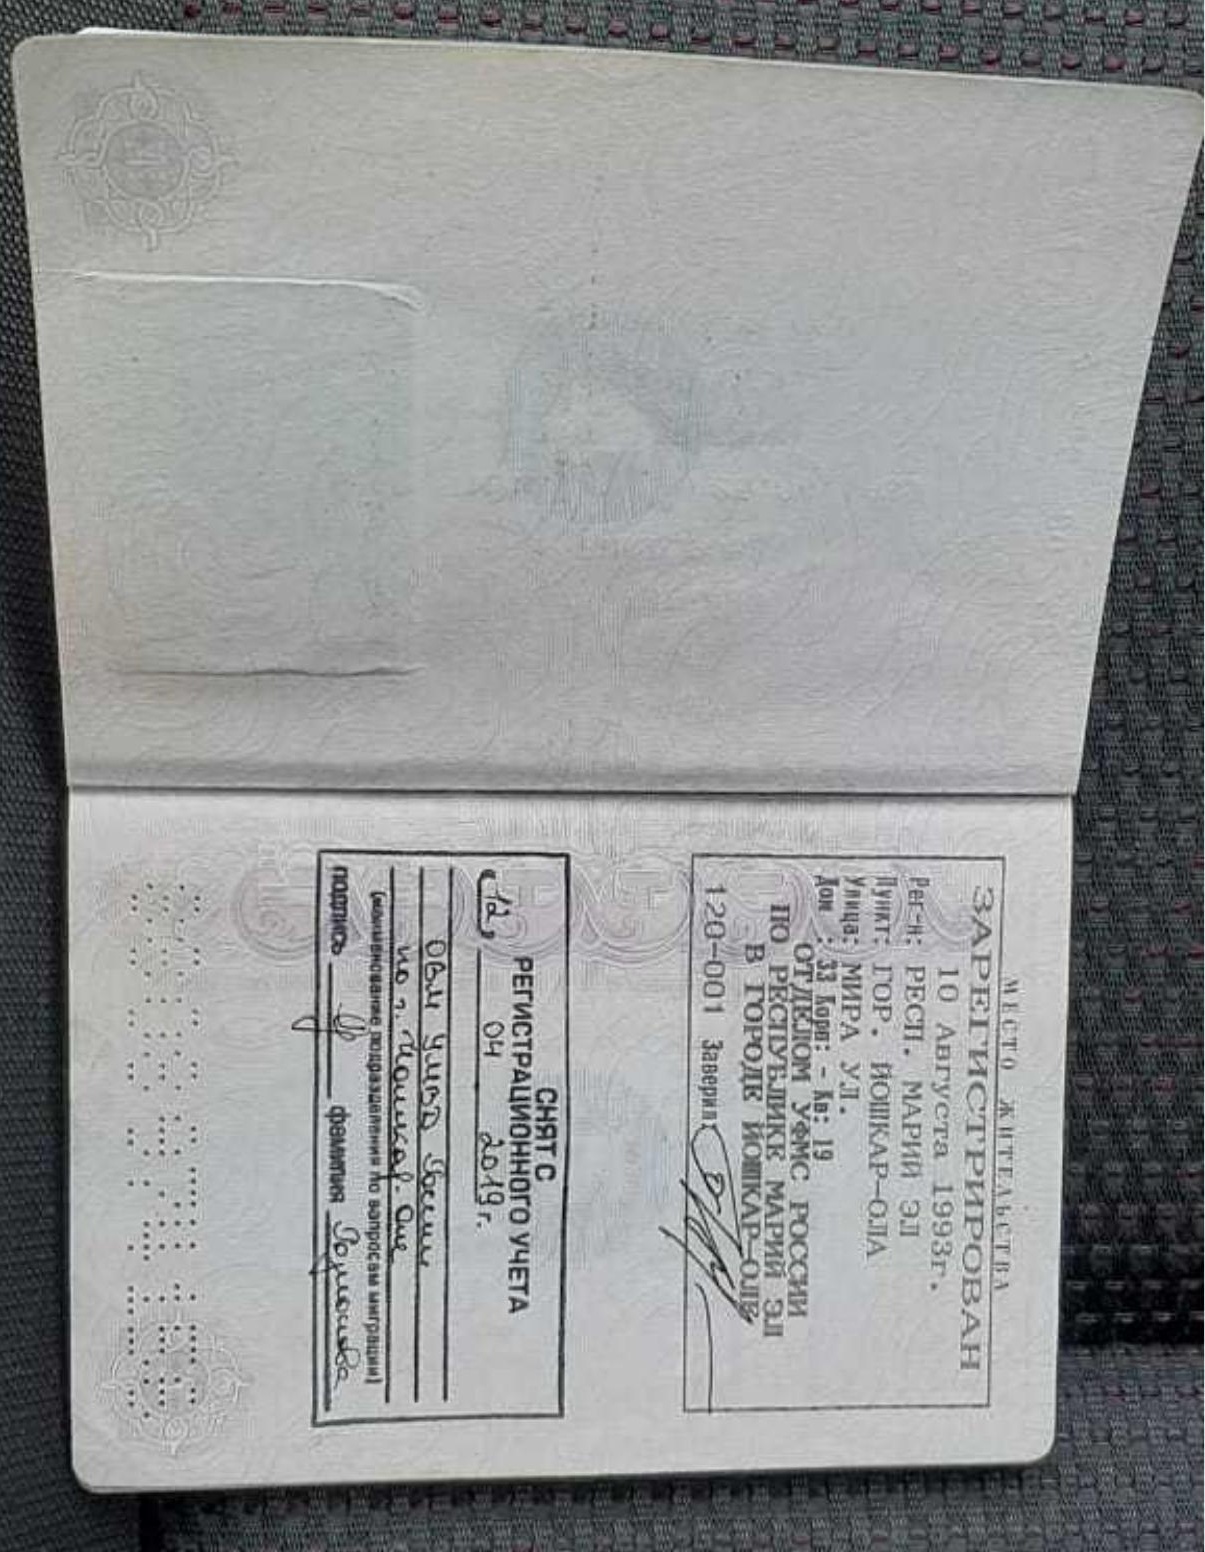 МЕСТО ЖИТЕЛЬСТВА
ЗАРЕГИСТРИРОВАН
10 Августа 1993г.
Рег-н: РЕСП. МАРИЙ ЭЛ
Пункт: ГОР. ЙОШКАР-ОЛА
Улица: МИРА УЛ.
Дом : 33 Корп: - Кв: 19
ОТДЕЛОМ УФМС РОССИИ
ПО РЕСПУБЛИКЕ МАРИЙ ЭЛ
В ГОРОДЕ ЙОШКАР-ОЛЕ
120-001 Заверил:
СНЯТ С
РЕГИСТРАЦИОННОГО УЧЕТА
«12» 04 2019 г.
ОВМ УМВД России
по г. Йошкар-Оле
(наименование подразделения по вопросам миграции)
подпись фамилия